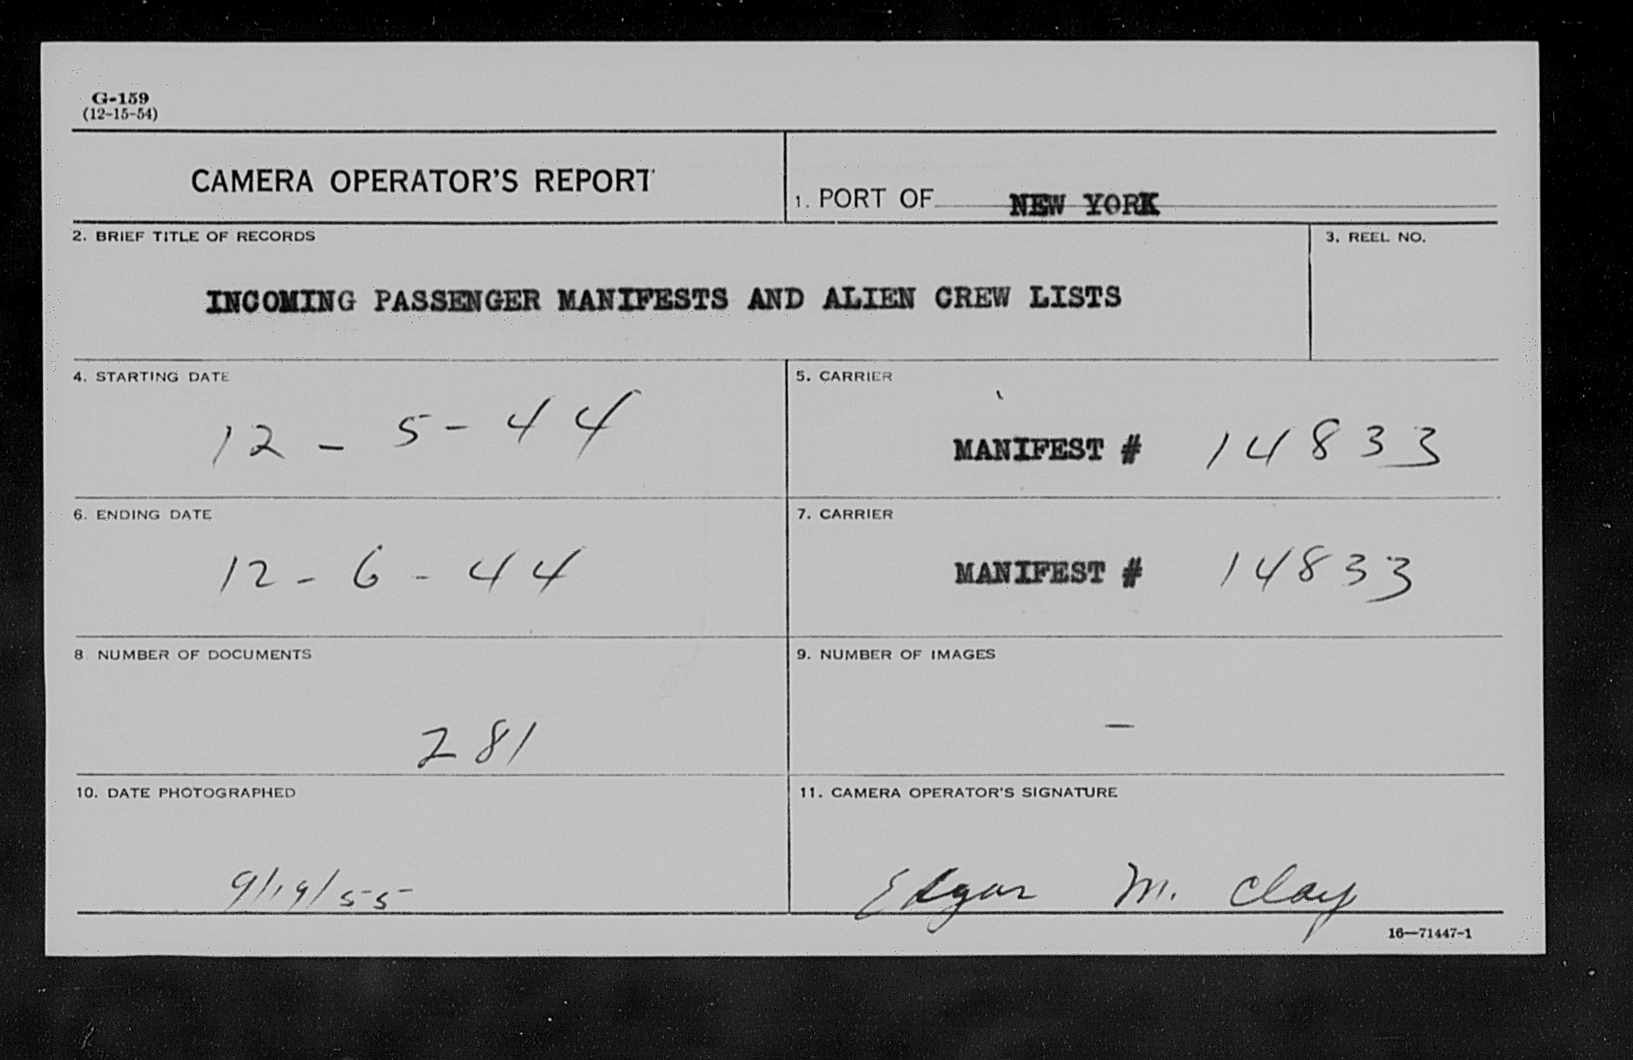 G-159
(12-15-54)
CAMERA OPERATOR'S REPORT
1. PORT OF NEW YORK
2. BRIEF TITLE OF RECORDS
INCOMING PASSENGER MANIFESTS AND ALIEN CREW LISTS
3. REEL NO.
4. STARTING DATE
12-5-44
5. CARRIER
MANIFEST # 14833
6. ENDING DATE
12-6-44
7. CARRIER
MANIFEST # 14833
8 NUMBER OF DOCUMENTS
281
9. NUMBER OF IMAGES
-
10. DATE PHOTOGRAPHED
9/19/55
11. CAMERA OPERATOR'S SIGNATURE
Edgar M. Clay
16—71447-1